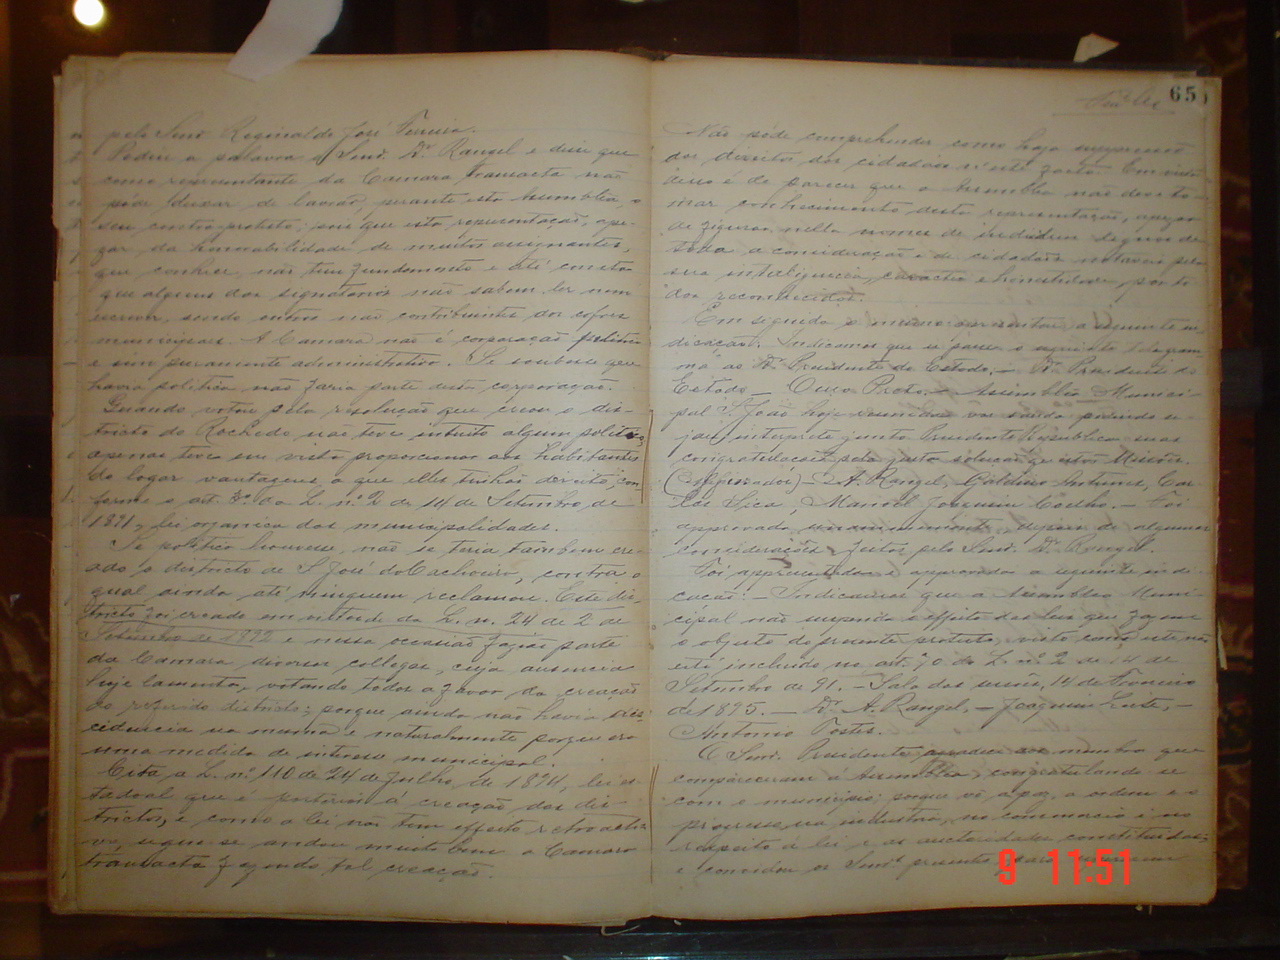 pelo Senr. Reginaldo José Ferreira.
Pediu a palavra o Senr. Dr. Rangel e disse que
como representante da Camara transacta não
póde deixar de lavrar, perante esta Assembléa, o
seu contra-protesto; pois que esta representação, ape-
zar da honrabilidade de muitos assignantes,
que conhece, não tem fundamento e até consta
que alguns dos signatarios não sabem ler nem
escrever, sendo outros não contribuintes dos cofres
municipaes. A Camara não é corporação politica
e sim puramente administrativa. Se soubesse que
havia politica não faria parte desta corporação.
Quando votou pela resolução que creou o dis-
tricto do Rochedo não teve intuito algum politico,
apenas teve em vista proporcionar aos habitantes
do logar vantagens a que elles tinhão direito, con
forme o art. da L. nº 2 de 14 de Setembro de
1891, lei organica das municipalidades.
Se politica houvesse, não se teria tambem cre-
ado o districto de S. José do Cachoeiro, contra o
qual ainda até ninguem reclamou. Este dis-
tricto foi creado em virtude da L. n. 24 de 2 de
Setembro de 1892 e nessa occasião fazião parte
da Camara diversos collegas, cuja ausencia
hoje lamenta, votando todos a favor da creação
do referido districto; porque ainda não havia dis-
cidencia na mesma e naturalmente porque era
uma medida de interesse municipal.
Cita a L. nº 110 de 24 de Julho de 1894, lei es-
tadoal que é posterior á creação dos dis-
trictos, e como a lei não tem effeito retroacti-
vo, segue-se andou muito bem a Camara
transacta fazendo tal creação.
65
Não póde comprehender como haja suppressão
dos direitos dos cidadãos n'este facto. Em vista
disso é de parecer que a Assembléa não deve to-
mar conhecimento desta representação, apezar
de figurar nella nomes de individuos dignos de
toda a consideração e de cidadãos notaveis pela
sua intelligencia, caracter e honestidade, por to-
dos reconhecidos.
Em seguida o mesmo apresentou a seguinte in-
dicação: Indicamos que se passe o seguinte telegram
ma ao Dr. Presidente do Estado. — Dr. Presidente do
Estado — Ouro Preto. — Assembléa Munici-
pal S. João hoje reunida vos saúda pedindo se-
jaes interprete junto Presidente Republica suas
congratulações pela justa solução questão Missões.
(Assignados) — A. Rangel, Galdino Antunes, Car-
los Sica, Manoel Joaquim Coelho. — Foi
approvada unanimemente depois de algumas
considerações feitas pelo Senr. Dr. Rangel.
Foi apresentada e approvada a seguinte indi-
cação: — Indicamos que a Assembléa Muni-
cipal não suspenda o effeito das leis que fazem
o objecto do presente protesto, visto como este não
está incluido no art. 70 da L. nº 2 de 14 de
Setembro de 91. — Sala das sessões, 14 de Fevereiro
de 1895. — Dr. A. Rangel, — Joaquim Leite, —
Antonio Tostes.
O Senr. Presidente agradece aos membros que
compareceram á Assembléa, congratulando-se
com o municipio; porque vê a paz, a ordem e o
progresso na industria, no commercio e no
respeito á lei e as auctoridades constituidas;
e convidou os Senrs. presentes
9 11:51